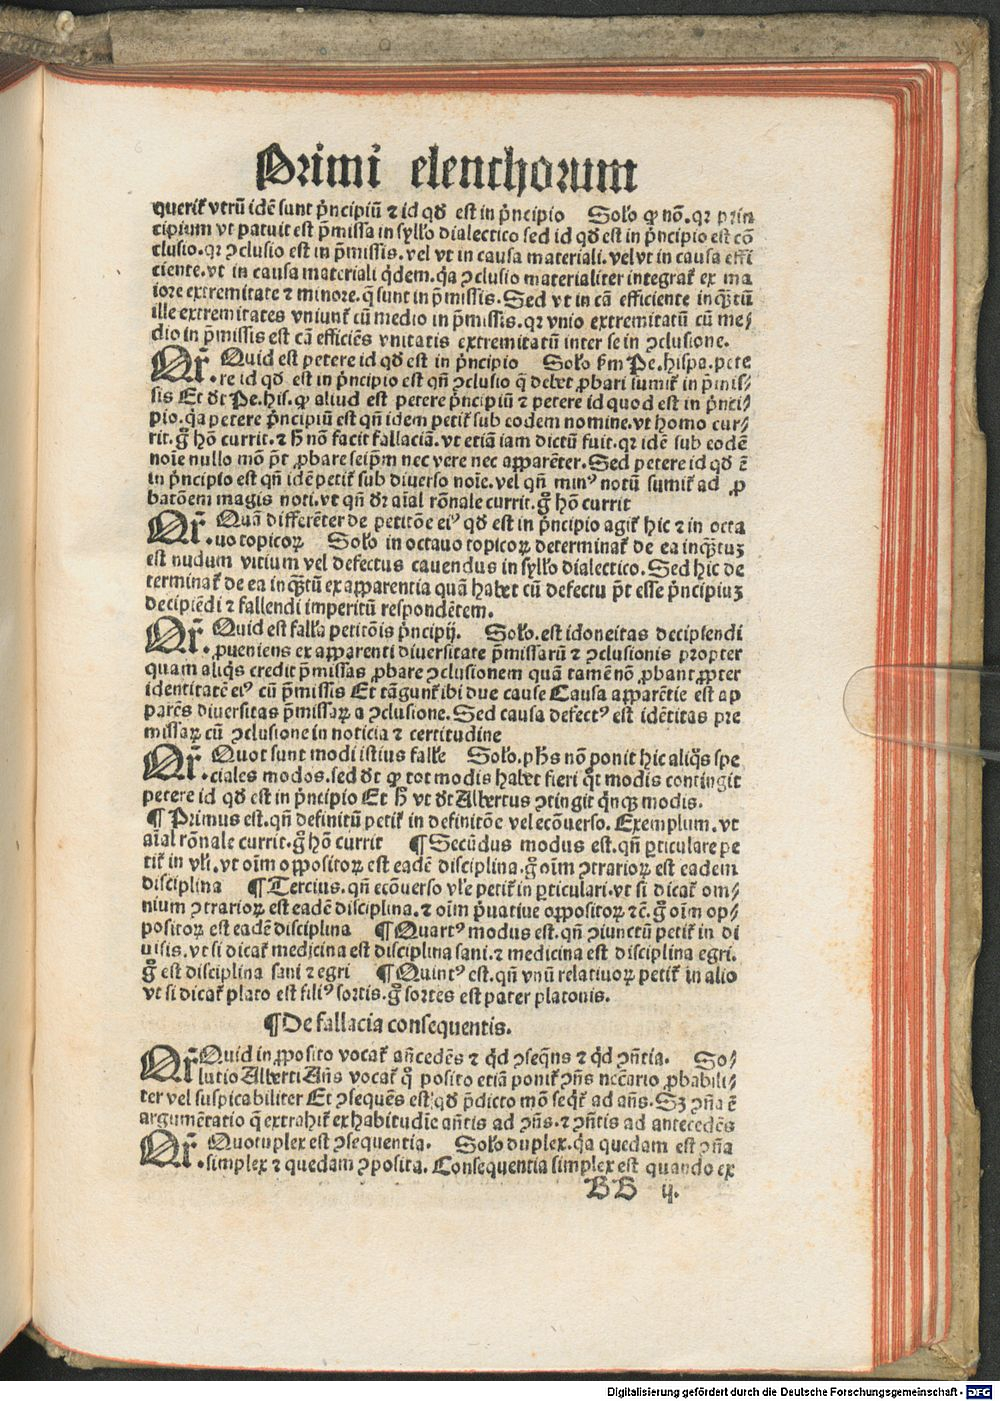 Primi elenchorum
querit᷑ vtrū idē sunt pͥncipiū ⁊ id qd̄ est in pͥncipio Solo ꝙ nō. qꝛ prin
cipium vt patuit est p̄missa in syllo dialectico sed id qd̄ est in pͥncipio est cō
clusio. qꝛ ꝯclusio est in p̄missis. vel vt in causa materiali. vel vt in causa effi
ciente. vt in causa materiali qͥdem. qꝛ ꝯclusio materialiter integrat᷑ ex ma
iore extremitate ⁊ minore. q̄ sunt in p̄missis. Sed vt in cā efficiente inqͣꝫtū
ille extremitates vniunt᷑ cū medio in p̄missis. qꝛ vnio extremitatū cū me⸗
dio in p̄missis est cā efficiēs vnitatis extremitatū inter se in ꝯclusione.
Qr̄. Quid est petere id qd̄ est in pͥncipio Solo ẜm Pe. hispa. pete
re id qd̄ est in pͥncipio est qn̄ ꝯclusio q̄ debet ꝓbari sumit᷑ in p̄mis⸗
sis Et dt̄ Pe. his. ꝙ aliud est petere pͥncipiū ⁊ petere id quod est in pͥnci⸗
pio. qꝛ petere pͥncipiū est qn̄ idem petit᷑ sub eodem nomine. vt homo cur⸗
rit. gͦ hō currit. ⁊ hͨ nō facit fallaciā. vt etiā iam dictū fuit. qꝛ idē sub eodē
noīe nullo mō pt̄ ꝓbare seipm̄ nec vere nec apparēter. Sed petere id qd̄ ē
in pͥncipio est qn̄ idē petit᷑ sub diuerso noīe. vel qn̄ minꝰ notū sumit᷑ ad ꝓ
batōem magis noti. vt qn̄ dr̄ aīal rōnale currit. gͦ hō currit
Qr̄. Quā differēter de petitōe eiꝰ qd̄ est in pͥncipio agit᷑ hic ⁊ in octa
uo topicoꝝ Solo in octauo topicoꝝ determinat᷑ de ea inqͣꝫtuꝫ
est nudum vitium vel defectus cauendus in syllo dialectico. Sed hic de
terminat᷑ de ea inqͣꝫtū ex apparentia quā habet cū defectu pt̄ esse pͥncipiuꝫ
decipiēdi ⁊ fallendi imperitū respondētem.
Qr̄. Quid est falla petitōis pͥncipij. Solo. est idoneitas decipiendi
ꝓueniens ex apparenti diuersitate p̄missarū ⁊ ꝯclusionis propter
quam aliqͥs credit p̄missas ꝓbare ꝯclusionem quā tamē nō ꝓbant ꝓpter
identitatē eiꝰ cū p̄missis Et tāgunt᷑ ibi due cause Causa apparētie est ap
parēs diuersitas p̄missaꝝ a ꝯclusione. Sed causa defectꝰ est idētitas pre
missaꝝ cū ꝯclusione in noticia ⁊ certitudine
Qr̄. Quot sunt modi istius falle Solo. phs nō ponit hic aliqͦs spe
ciales modos. sed dt̄ ꝙ tot modis habet fieri qͦt modis contingit
petere id qd̄ est in pͥncipio Et hͨ vt dt̄ Albertus ꝯtingit qͥnqꝫ modis.
¶ Primus est. qn̄ definitū petit᷑ in definitōe vel ecōuerso. Exemplum. vt
aīal rōnale currit. gͦ hō currit ¶ Secūdus modus est. qn̄ ꝑticulare pe
tit᷑ in vli. vt oīm oppositoꝝ est eadē disciplina. gͦ oīm ꝯtrarioꝝ est eadem
disciplina ¶ Tercius. qn̄ ecōuerso vle petit᷑ in ꝑticulari. vt si dicat᷑ om⸗
nium ꝯtrarioꝝ est eadē disciplina. ⁊ oīm pͥuatiue oppositoꝝ ⁊c̄. gͦ oīm op⸗
positoꝝ est eadē disciplina ¶ Quartꝰ modus est. qn̄ ꝯiunctū petit᷑ in di
uisis. vt si dicat᷑ medicina est disciplina sani. ⁊ medicina est disciplina egri.
gͦ est disciplina sani ⁊ egri ¶ Quintꝰ est. qn̄ vnū relatiuoꝝ petit᷑ in alio
vt si dicat᷑ plato est filiꝰ sortis. gͦ sortes est pater platonis.
¶ De fallacia consequentis.
Qr̄. Quid in ꝓposito vocat᷑ an̄cedēs ⁊ qͥd ꝯseqn̄s ⁊ qͥd ꝯn̄tia. So⸗
lutio Alberti An̄s vocat᷑ qͦ posito etiā ponit᷑ ꝯn̄s necc̄ario ꝓbabili⸗
ter vel suspicabiliter Et ꝯsequēs est qd̄ p̄dicto mō seqͥt᷑ ad an̄s. Sꝫ ꝯn̄a ē
argumētatio q̄ extrahit᷑ ex habitudīe an̄tis ad ꝯn̄s. ⁊ ꝯn̄tis ad antecedēs
Qr̄. Quotuplex est ꝯsequentia. Solo duplex. qꝛ quedam est ꝯn̄a
simplex ⁊ quedam ꝯposita. Consequentia simplex est quando ex
BB ij.
Digitalisierung gefördert durch die Deutsche Forschungsgemeinschaft - DFG